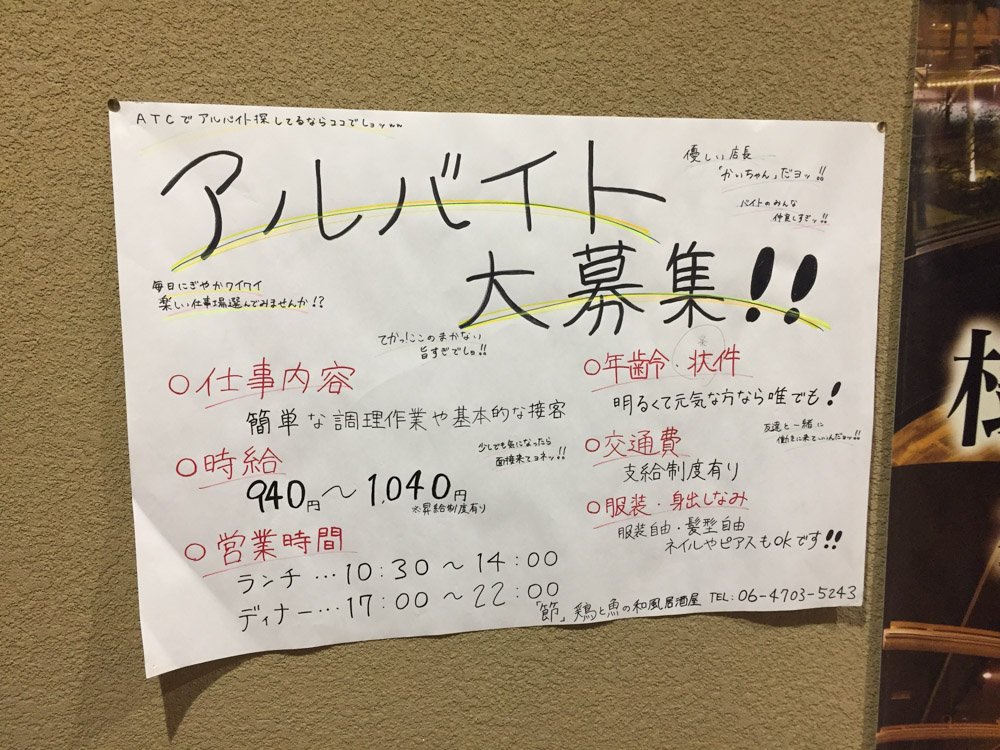 ATCでアルバイト探してるならココでしョッww
アルバイト
大募集!!
優しい店長
「かいちゃん」だヨッ!!
バイトのみんな
仲良しすぎッ!!
毎日にぎやかワイワイ
楽しい仕事場選んでみませんか!?
てかっ!ここのまかない
旨すぎでしョ!!
○仕事内容
簡単な調理作業や基本的な接客
○時給
940円〜1,040円
※昇給制度有り
少しでも気になったら
面接来てョネッ!!
○営業時間
ランチ…10:30〜14:00
ディナー…17:00〜22:00
○年齢・状件
明るくて元気な方なら唯でも!
友達と一緒に
働きに来ていいんだョッ!!
○交通費
支給制度有り
○服装・身出しなみ
服装自由・髪型自由
ネイルやピアスもOKです!!
「節」鶏と魚の和風居酒屋 TEL:06-4703-5243